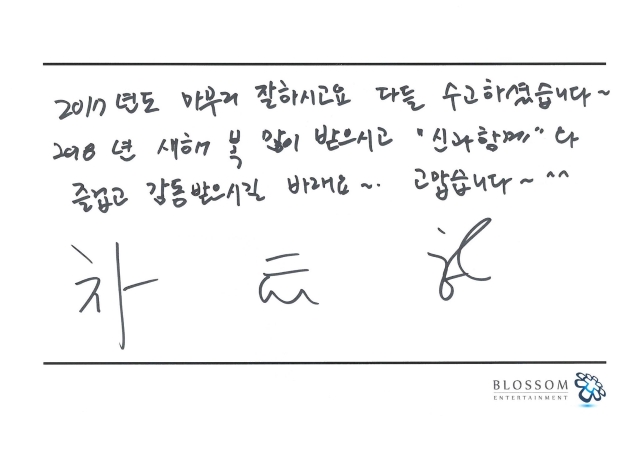 2017년도 마무리 잘하시고요 다들 수고하셨습니다~
2018년 새해 복 많이 받으시고 "신과함께" 다
즐겁고 감동받으시길 바래요~. 고맙습니다~ ^^
BLOSSOM
ENTERTAINMENT